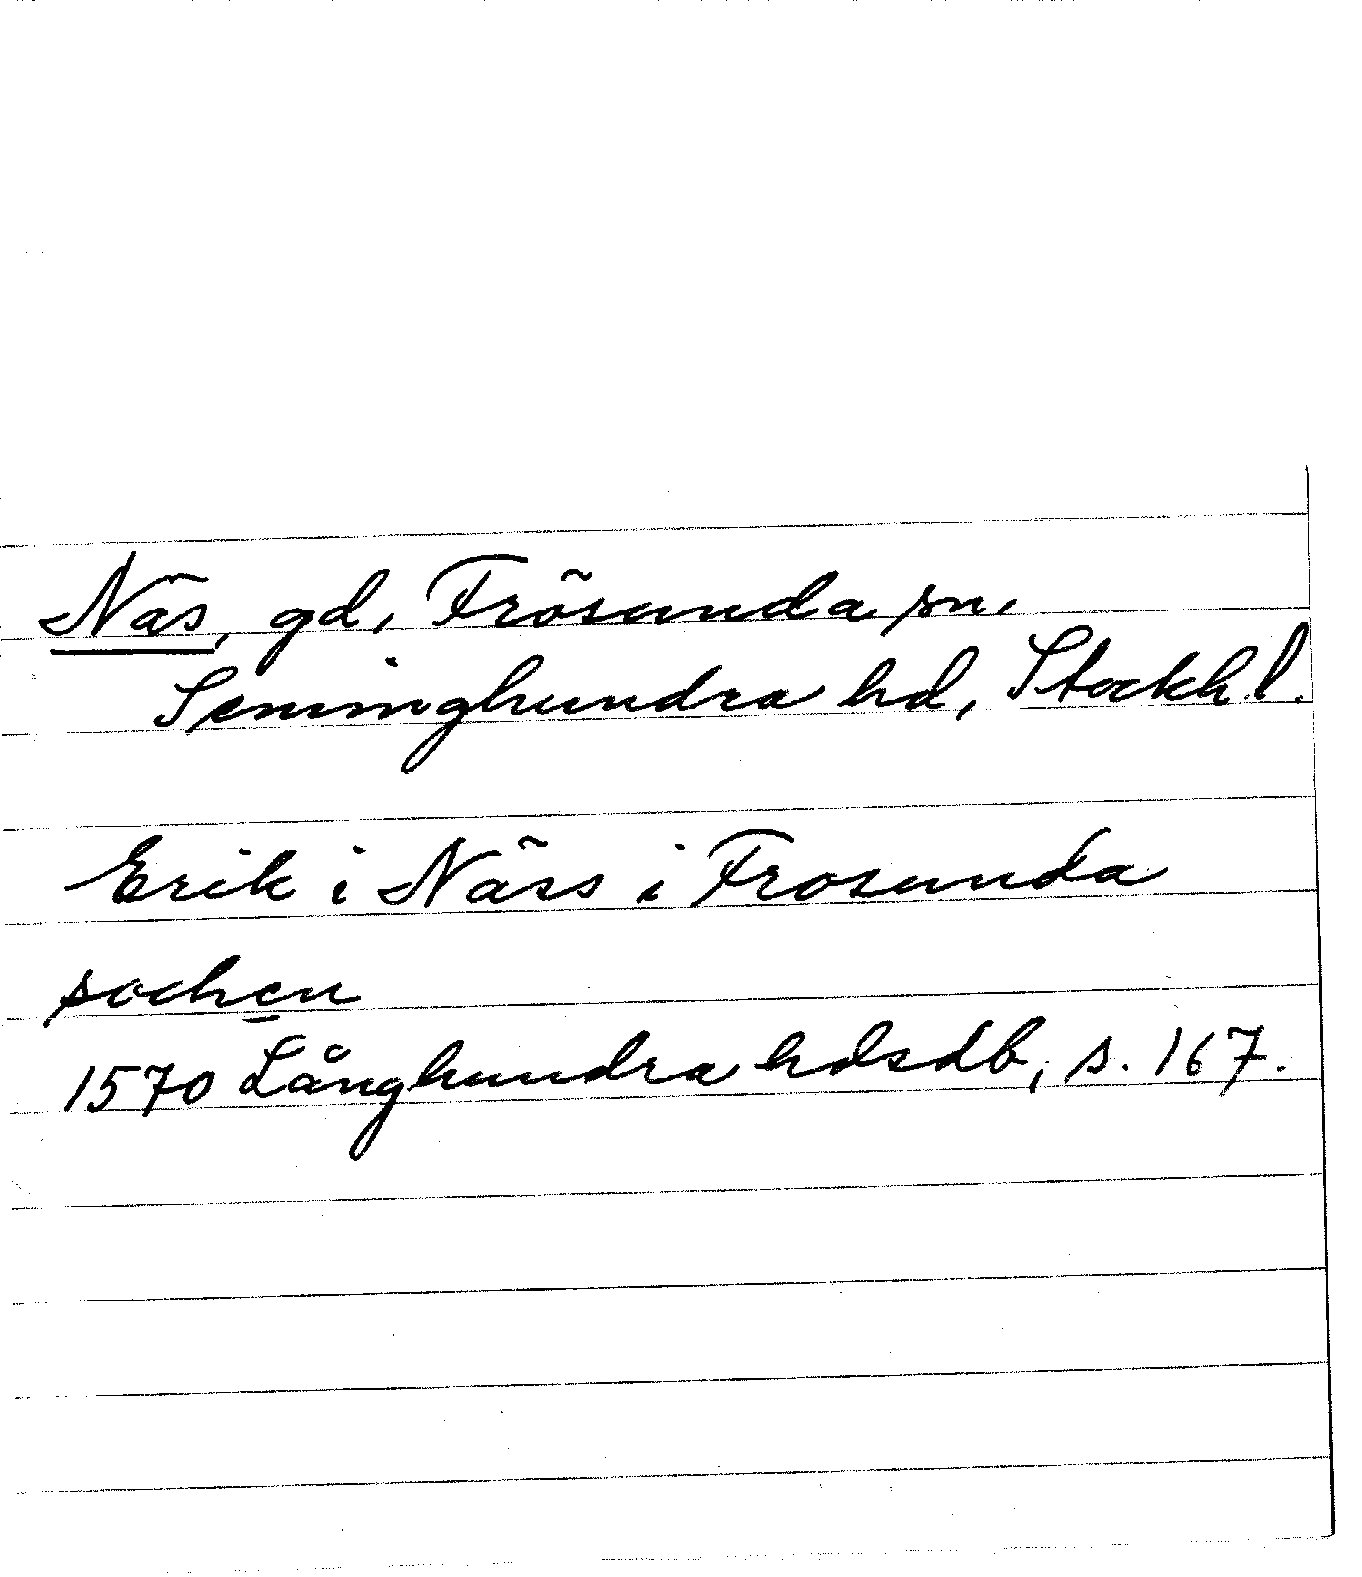 Näs, gd, Frösunda sn.
Seminghundra hd, Stockh l.
Erik i Näss i Frosunda
sochen
1570 Långhundra hdsdb, s. 167.